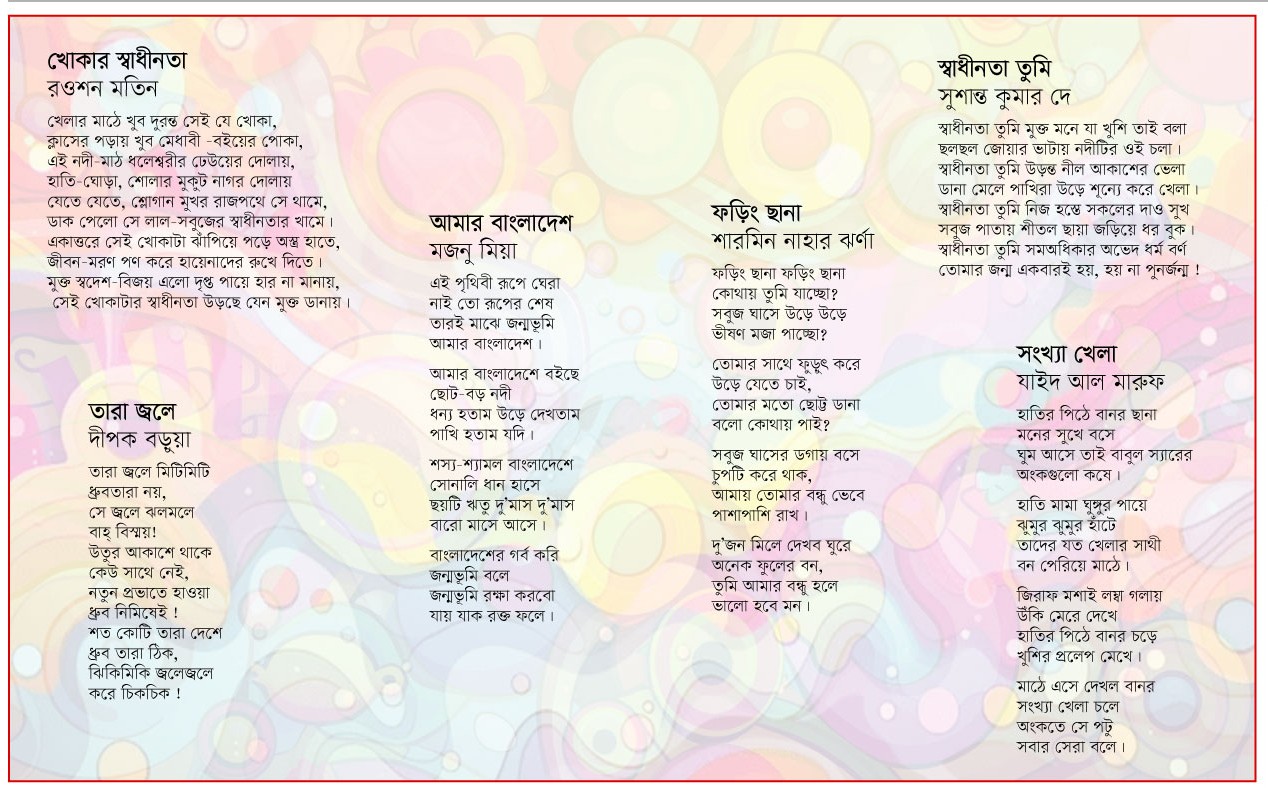 খোকার স্বাধীনতা
রওশন মতিন
খেলার মাঠে খুব দুরন্ত সেই যে খোকা,
ক্লাসের পড়ায় খুব মেধাবী -বইয়ের পোকা,
এই নদী-মাঠ ধলেশ্বরীর ঢেউয়ের দোলায়,
হাতি-ঘোড়া, শোলার মুকুট নাগর দোলায়
যেতে যেতে, শ্লোগান মুখর রাজপথে সে থামে,
ডাক পেলো সে লাল-সবুজের স্বাধীনতার খামে।
একাত্তরে সেই খোকাটা ঝাঁপিয়ে পড়ে অস্ত্র হাতে,
জীবন-মরণ পণ করে হায়েনাদের রুখে দিতে।
মুক্ত স্বদেশ-বিজয় এলো দৃপ্ত পায়ে হার না মানায়,
সেই খোকাটার স্বাধীনতা উড়ছে যেন মুক্ত ডানায়।
তারা জ্বলে
দীপক বড়ুয়া
তারা জ্বলে মিটিমিটি
ধ্রুবতারা নয়,
সে জ্বলে ঝলমলে
বাহ্ বিস্ময়!
উতুর আকাশে থাকে
কেউ সাথে নেই,
নতুন প্রভাতে হাওয়া
ধ্রুব নিমিষেই !
শত কোটি তারা দেশে
ধ্রুব তারা ঠিক,
ঝিকিমিকি জ্বলেজ্বলে
করে চিকচিক !
আমার বাংলাদেশ
মজনু মিয়া
এই পৃথিবী রূপে ঘেরা
নাই তো রূপের শেষ
তারই মাঝে জন্মভূমি
আমার বাংলাদেশ।
আমার বাংলাদেশে বইছে
ছোট-বড় নদী
ধন্য হতাম উড়ে দেখতাম
পাখি হতাম যদি।
শস্য-শ্যামল বাংলাদেশে
সোনালি ধান হাসে
ছয়টি ঋতু দু'মাস দু'মাস
বারো মাসে আসে।
বাংলাদেশের গর্ব করি
জন্মভূমি বলে
জন্মভূমি রক্ষা করবো
যায় যাক রক্ত ফলে।
ফড়িং ছানা
শারমিন নাহার ঝর্ণা
ফড়িং ছানা ফড়িং ছানা
কোথায় তুমি যাচ্ছো?
সবুজ ঘাসে উড়ে উড়ে
ভীষণ মজা পাচ্ছো?
তোমার সাথে ফুড়ুৎ করে
উড়ে যেতে চাই,
তোমার মতো ছোট্ট ডানা
বলো কোথায় পাই?
সবুজ ঘাসের ডগায় বসে
চুপটি করে থাক,
আমায় তোমার বন্ধু ভেবে
পাশাপাশি রাখ।
দু'জন মিলে দেখব ঘুরে
অনেক ফুলের বন,
তুমি আমার বন্ধু হলে
ভালো হবে মন।
স্বাধীনতা তুমি
সুশান্ত কুমার দে
স্বাধীনতা তুমি মুক্ত মনে যা খুশি তাই বলা
ছলছল জোয়ার ভাটায় নদীটির ওই চলা।
স্বাধীনতা তুমি উড়ন্ত নীল আকাশের ভেলা
ডানা মেলে পাখিরা উড়ে শূন্যে করে খেলা।
স্বাধীনতা তুমি নিজ হস্তে সকলের দাও সুখ
সবুজ পাতায় শীতল ছায়া জড়িয়ে ধর বুক।
স্বাধীনতা তুমি সমঅধিকার অভেদ ধর্ম বর্ণ
তোমার জন্ম একবারই হয়, হয় না পুনর্জন্ম !
সংখ্যা খেলা
যাইদ আল মারুফ
হাতির পিঠে বানর ছানা
মনের সুখে বসে
ঘুম আসে তাই বাবুল স্যারের
অংকগুলো কষে।
হাতি মামা ঘুঙ্গুর পায়ে
ঝুমুর ঝুমুর হাঁটে
তাদের যত খেলার সাথী
বন পেরিয়ে মাঠে।
জিরাফ মশাই লম্বা গলায়
উঁকি মেরে দেখে
হাতির পিঠে বানর চড়ে
খুশির প্রলেপ মেখে।
মাঠে এসে দেখল বানর
সংখ্যা খেলা চলে
অংকতে সে পটু
সবার সেরা বলে।